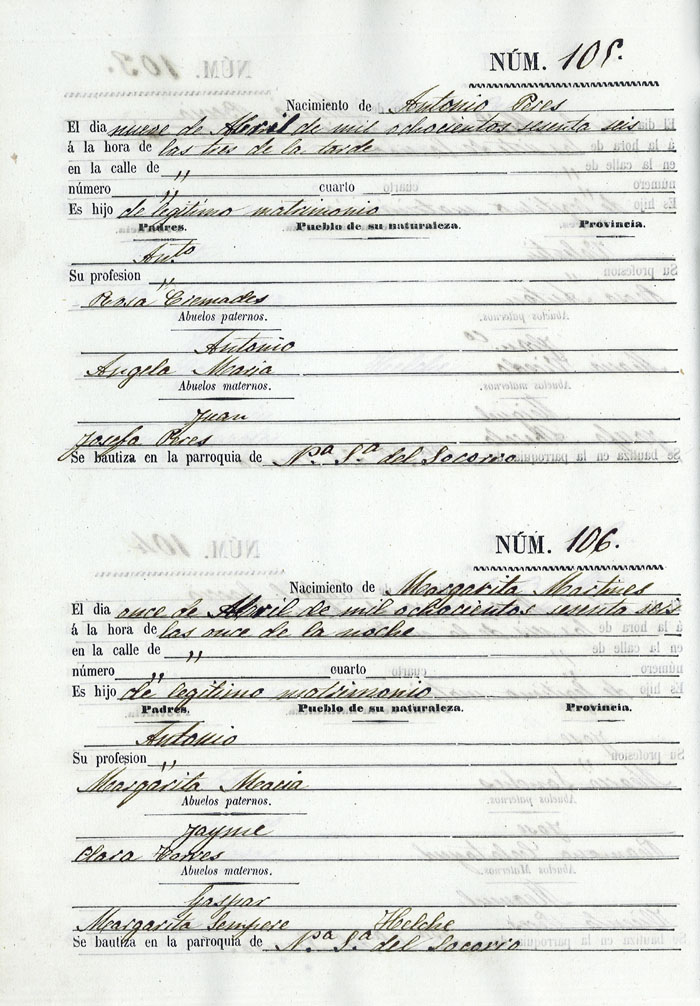 NÚM. 105.
Nacimiento de Antonio Peres
El dia nueve de Abril de mil ochocientos sesenta seis
á la hora de las tres de la tarde
en la calle de ,,
número ,, cuarto
Es hijo de legitimo matrimonio
Padres. Pueblo de su naturaleza. Provincia.
Anto
Su profesion ,,
Rosa Cremades
Abuelos paternos.
Antonio
Angela Maria
Abuelos maternos.
Juan
Josefa Peres
Se bautiza en la parroquia de Na Sa del Socorro
NÚM. 106.
Nacimiento de Margarita Martines
El dia once de Abril de mil ochocientos sesenta seis
á la hora de las once de la noche
en la calle de ,,
número ,, cuarto
Es hijo de legitimo matrimonio
Padres. Pueblo de su naturaleza. Provincia.
Antonio
Su profesion ,,
Margarita Macia
Abuelos paternos.
Jayme
Clara Torres
Abuelos maternos.
Gaspar
Margarita Sempere Helche
Se bautiza en la parroquia de Na Sa del Socorro